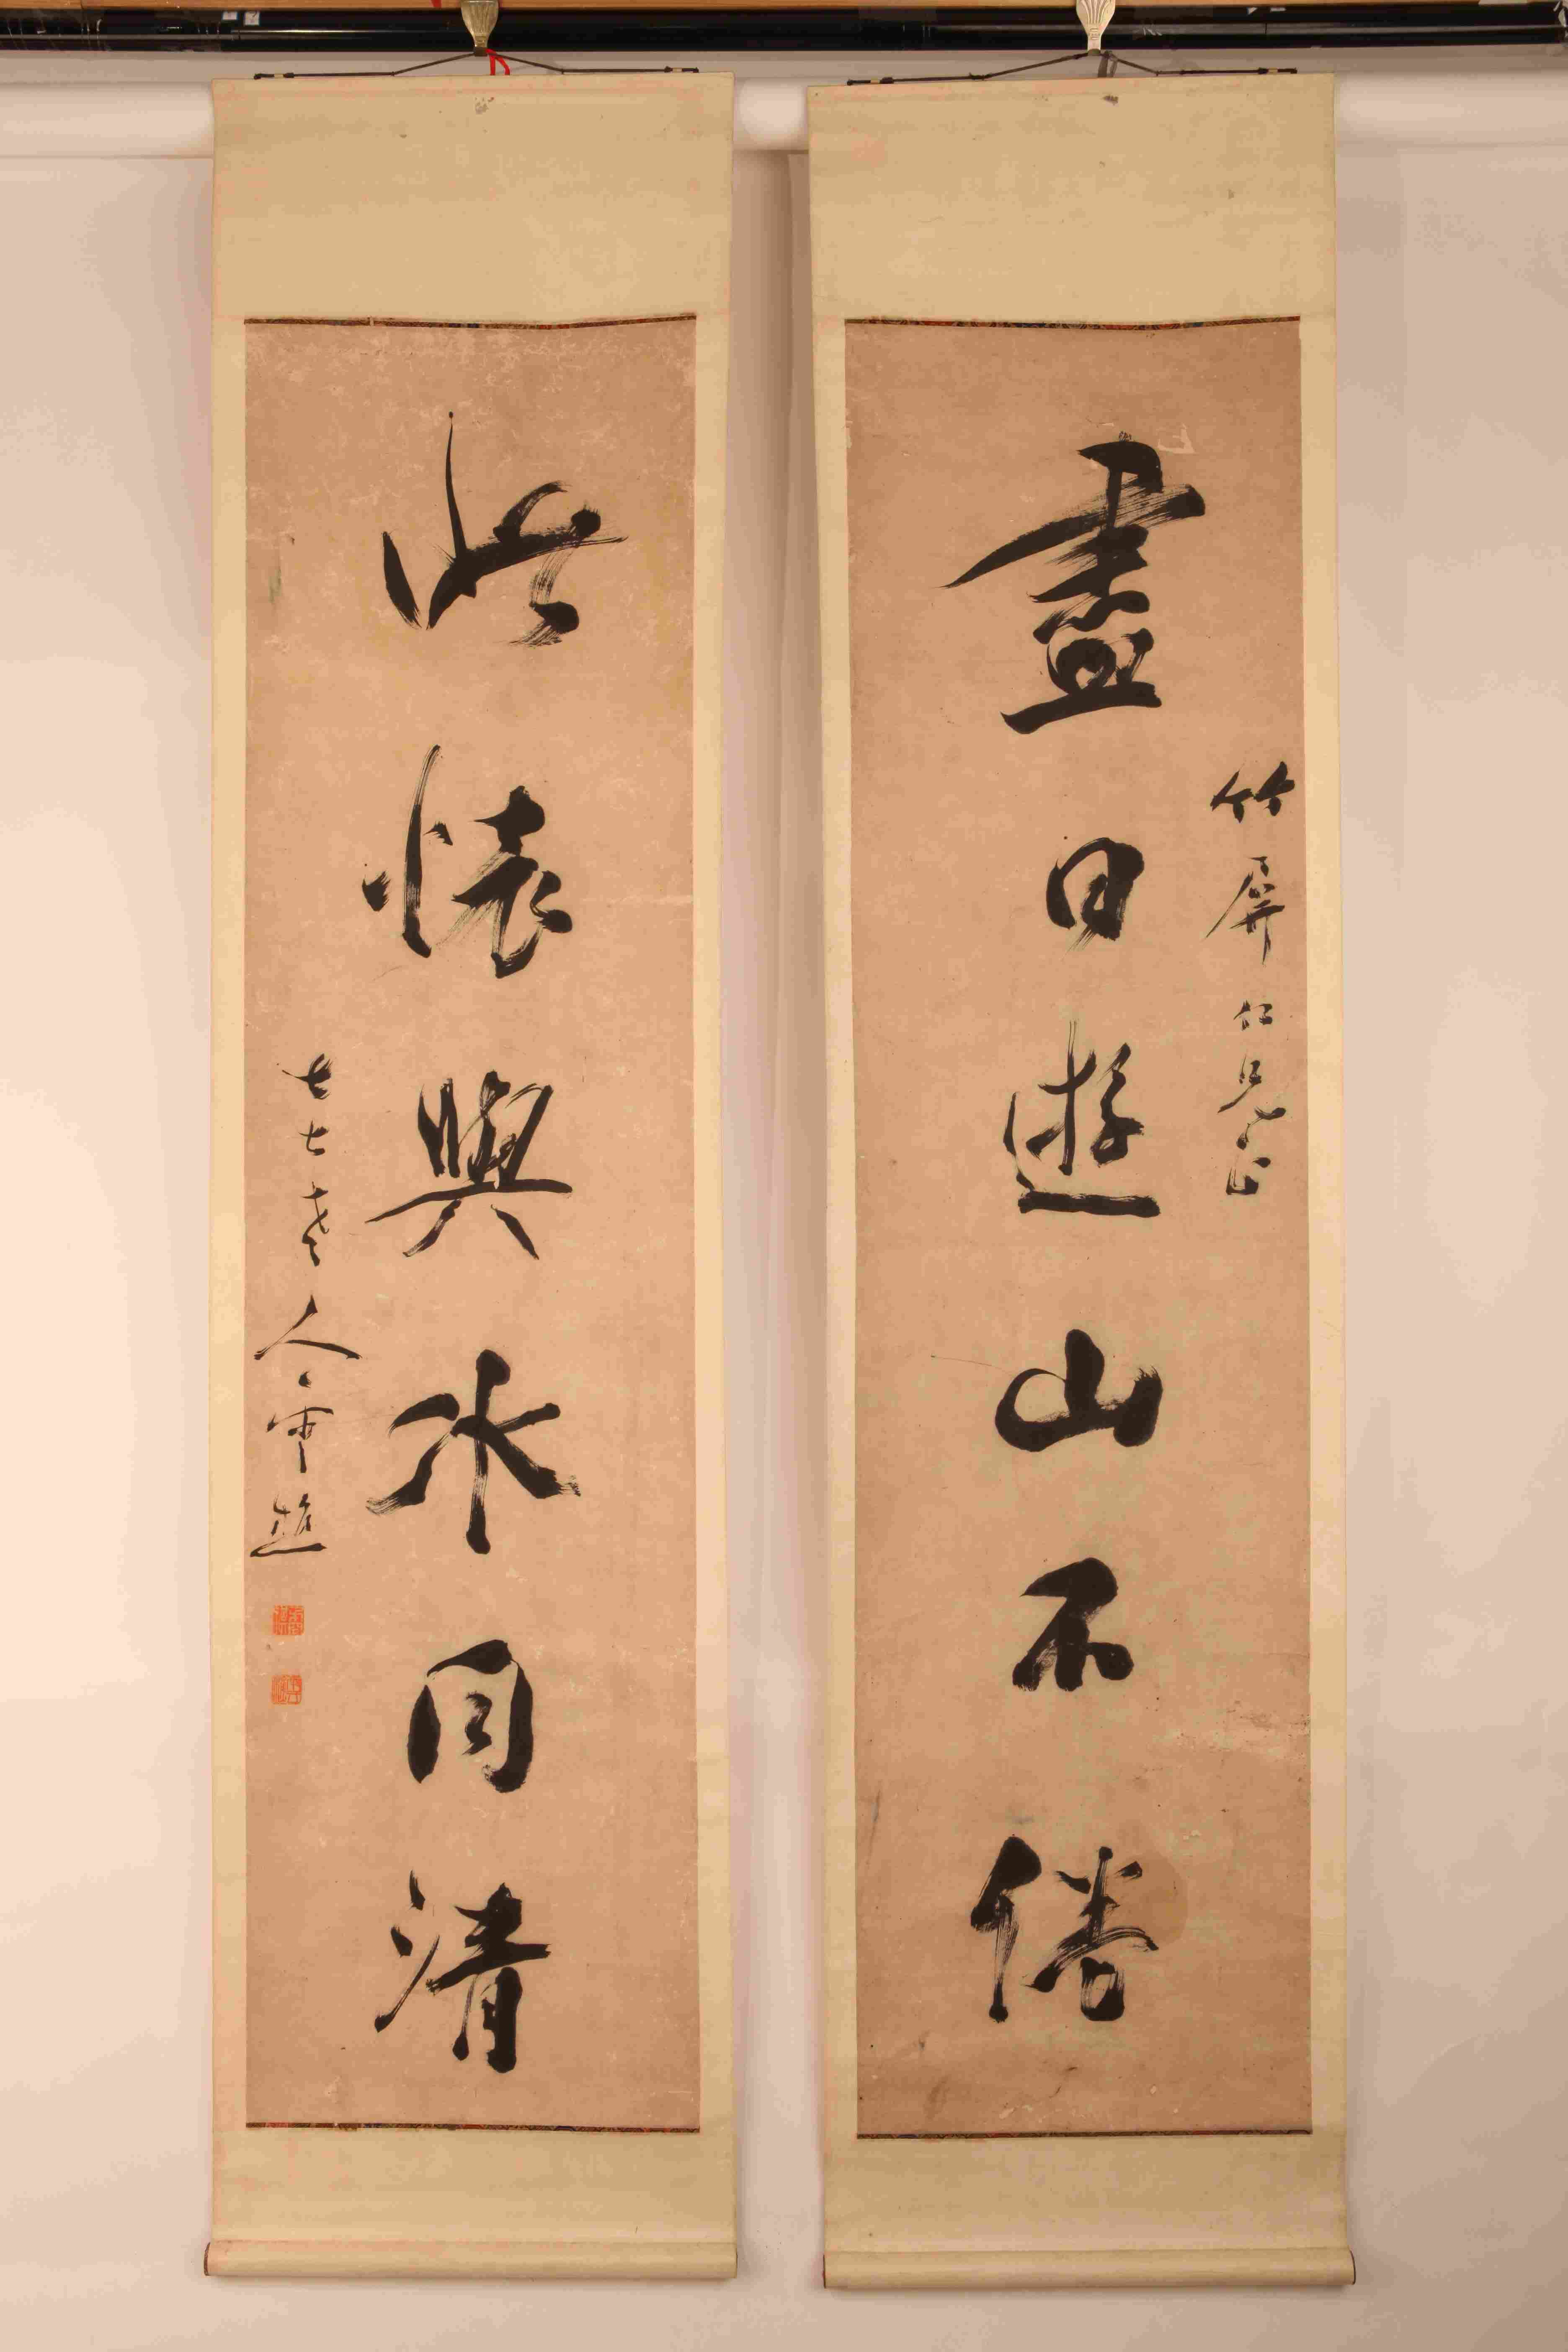 竹屏仁兄正
盡日遊山不倦
此懷與水同清
七七老人